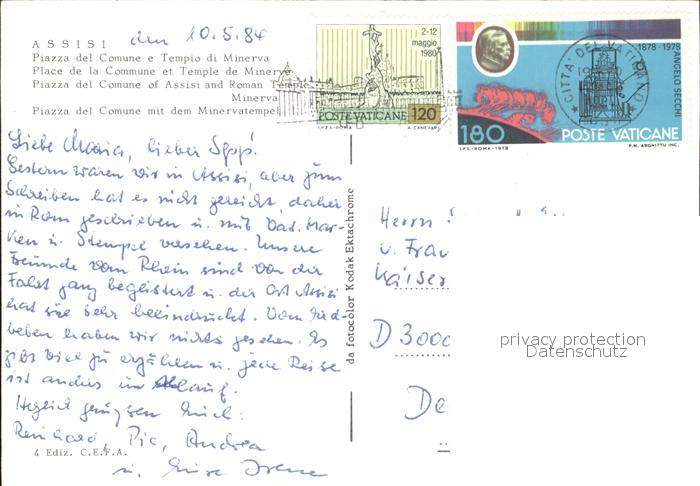 ASSISI den 10.5.84
Piazza del Comune e Tempio di Minerva
Place de la Commune et Temple de Minerve
Piazza del Comune of Assisi and Roman Temple
Minerva
Piazza del Comune mit dem Minervatempel
2-12
maggio
1980
POSTE VATICANE 120
I.P.Z.S.-ROMA A. CANEVARI
1878-1978
ANGELO SECCHI
180 POSTE VATICANE
I.P.S.-ROMA-1978 P.N. ARGHITTU INC.
CITTA DEL VATICANO
Liebe Maria, lieber Sepp!
Gestern waren wir in Assisi, aber zum
Schreiben hat es nicht gereicht, daher
in Rom geschrieben u. mit Vat. Mar-
ken u. Stempel versehen. Unsere
Freunde vom Rhein sind von der
Fahrt ganz begeistert u. der Ort Assisi
hat sie sehr beeindruckt. Vom Erd-
beben haben wir nichts gesehen. Es
gibt viel zu erzählen u. jede Reise
ist anders im Ablauf.
Herzlich grüßen Euch:
Reinhard, Pia, Andrea
u. Eure Irene
4 Ediz. C.E.F.A.
da fotocolor Kodak Ektachrome
Herrn
u. Frau
Kaiser
D 3000
De
privacy protection
Datenschutz